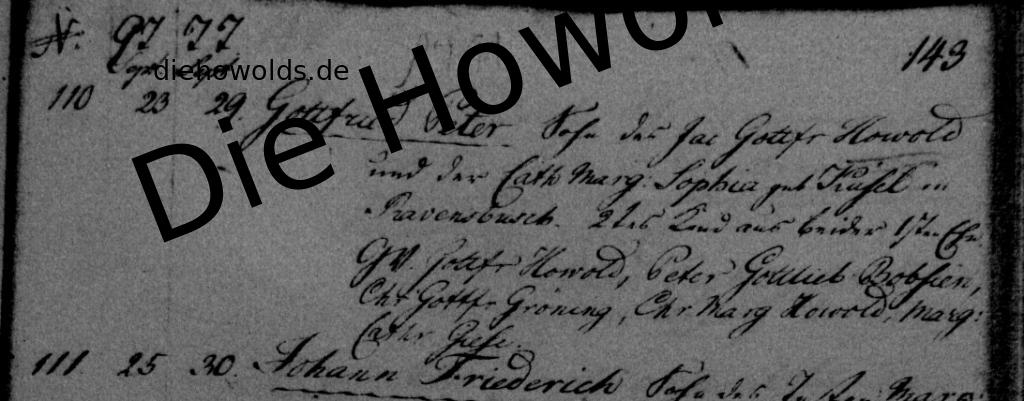 N. 97 77 143
diehowolds.de
Die Howol
110 23 29. Gottfried Peter Sohn des Jac Gottfr Howold
und der Cath Marg: Sophia geb in
Ravensbusch. 2tes Kind aus beider 1sten Ehe.
GV. Gottfr Howold, Peter Gottlieb Bobsien,
Chr Gottfr Gröning, Chr Marg Howold, Marg:
Cathr Giese.
111 25 30. Johann Friederich Sohn des